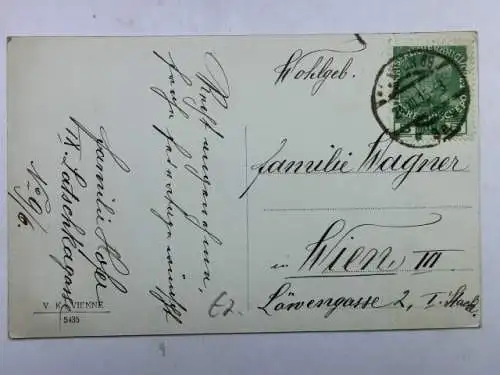 Recht angenehme,
frohe Feiertage wünscht
Familie Hofer
IX Latschkagasse
No 9/6.
Wohlgeb.
Familie Wagner
in Wien III
Löwengasse 2, I. Stock.
V. K. VIENNE
5435